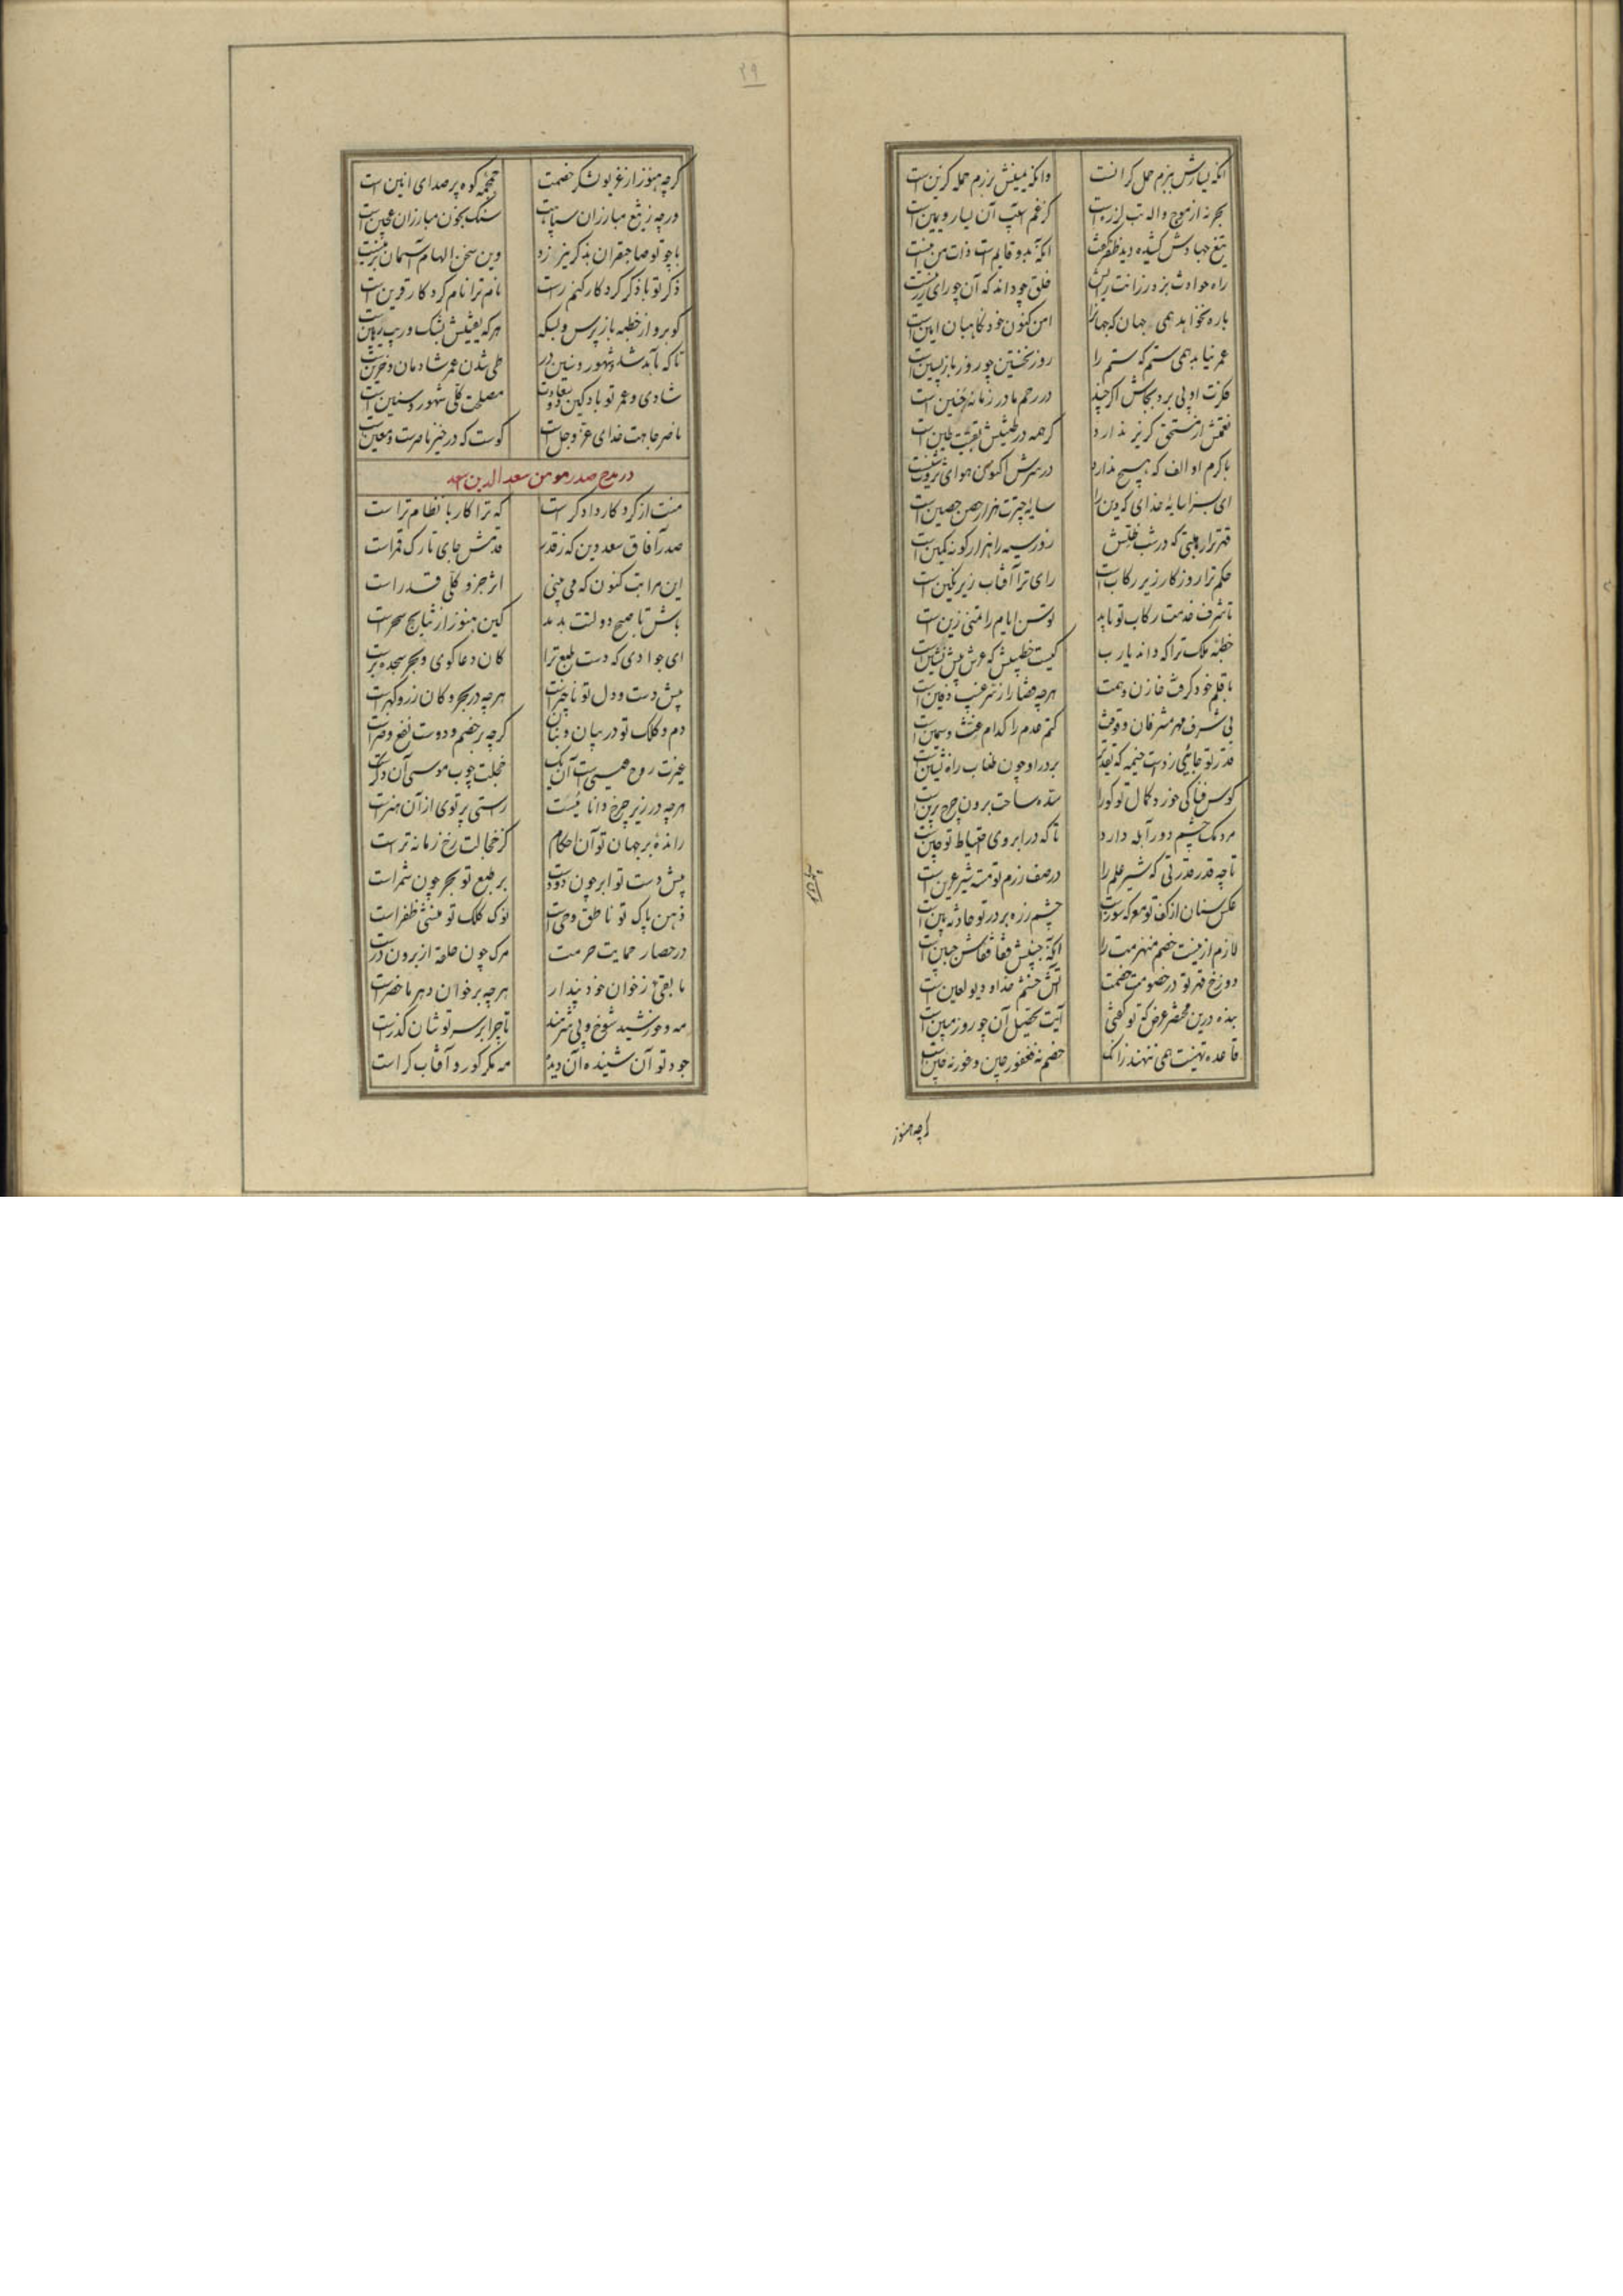 انکه یسارش ببزم حمل کرانست وانکه یمینش برزم حمله کزین است
بحر نه از موج واله تب لرزست کز غم آسیب آن یسار و یمین است
تیغ جهادش کشیده دید ظفر گفت انکه بدو قایم است ذات من اینست
راه حوادث بزد رزانت رایش خلق چه داند که آن چه رای رزینست
باره نخواهد همی جهان که جهانرا امن کنون خود نکاهبان امین است
عمر نیابد همی ستم که ستم را روز نخستین چو روز بازپسین است
فکرت او پی برد بجاش اگر چند در رحم مادر زمانه جنین است
نعمتش از مستحق گزیر ندارد گر همه در طینتش بقیت طین است
با کرم او الف که هیچ ندارد در سرش اکنون هوای ثروت شینست
ای بسزا سایه خدای که دین را سایه چترت هزار حصن حصین است
قهر ترا هیبتی که در شب ظلمتش روز سیه را هزار گونه کمین است
حکم ترا روزگار زیر رکاب است رای ترا آفتاب زیر نگین است
تا شرف خدمت رکاب تو یابد توسن ایام را تمنی زین است
خطبه ملک ترا که داند یارب کیست خطیبش که عرش پیش نشین است
با قلم خود گرفت خازن و همت هرچه قضا را ز سر غیب دفین است
بی شرف مهر مشرفان وقوفت کتم عدم را کدام غث و سمین است
قدر تو جائی زدست خیمه که تقدیر بر در او چون طناب راه نشین است
کوس فنا کی خورد کمال تو کورا سده ساحت برون چرخ برین است
مردمک چشم دور آبله دارد تا که در ابروی احتیاط تو چین است
تا چه قدر قدرتی که شیر علم را در صف رزم تو مسته شیر عرین است
عکس سنان از کف تو معرکه سوز است چشم زره بر در تو حادثه بین است
لازم از نیست خصم منهزمت را انکه جبینش قفا قفاش جبین است
دوزخ قهر تو در خصومت خصمت آتش خشم خدا و دیو لعین است
بنده درین محضر عرض که تو گفتی آیت تحصیل آن چو روز مبین است
قاعده تهنیت همی ننهد زانک خصم نه فغفور چین و غور نه چین است
کرچه هنوز
۲۹
کرچه هنوز از غریو لشکر خصمت جمجمه کوه پر صدای انین است
ورچه ز تیغ مبارزان سپاهت سنگ بخون مبارزان عجین است
با چو تو صاحبقران بذکر نیرزد وین سخن الهام آسمان برینست
ذکر تو با ذکر کردکار کنم راست نام ترا نام کردکار قرین است
کو برو از خطبه بازپرس و ز سکه هر که یقینش بشک و ریب رهین است
تا که بآمد شد شهور و سنین در طی شدن عمر شادمان و حزین است
شادی و عمر تو باد کین دو سعادت مصلحت کلی شهور و سنین است
ناصر جاهت خدای عز و جل است کوست که در خیر ناصرست و معین است
در مدح صدر مومن سعد الدین اسعد
منت از کردکار دادگر است که ترا کار با نظام تر است
صدر آفاق سعد دین که ز قدر قدمش جای تارک قمر است
این مراتب کنون که می بینی اثر جزو کلی قدر است
باش تا صبح دولتت بدمد کین هنوز از نتایج سحر است
ای جوادی که دست طبع ترا کان دعا گوی و بحر سجده برست
پیش دست و دل تو ناچیز است هرچه در بحر و کان زر و گهر است
دم و کلک تو در بیان و بنان گرچه بر خصم و دوست نفع و ضر است
غیرت روح عیسی است آن یک خجلت چوب موسی آن دگر است
هرچه در زیر چرخ دانائیست راستی پرتوی از آن هنر است
رانده بر جهان تو آن احکام کز خجالت رخ زمانه تر است
پیش دست تو ابر چون دودست بر طبع تو بحر چون شمر است
ذهن پاک تو ناطق وحی است نوک کلک تو منشئ ظفر است
در حصار حمایت حرمت مرگ چون حلقه از برون در است
ما بقی ز خوان خود پندار هرچه بر خوان دهر ماحضر است
مه و خورشید شوخ و بی شرمند تا چرا بر سر تو شان گذر است
جود تو آن شنیده آن دیده مه مگر کور و آفتاب کر است